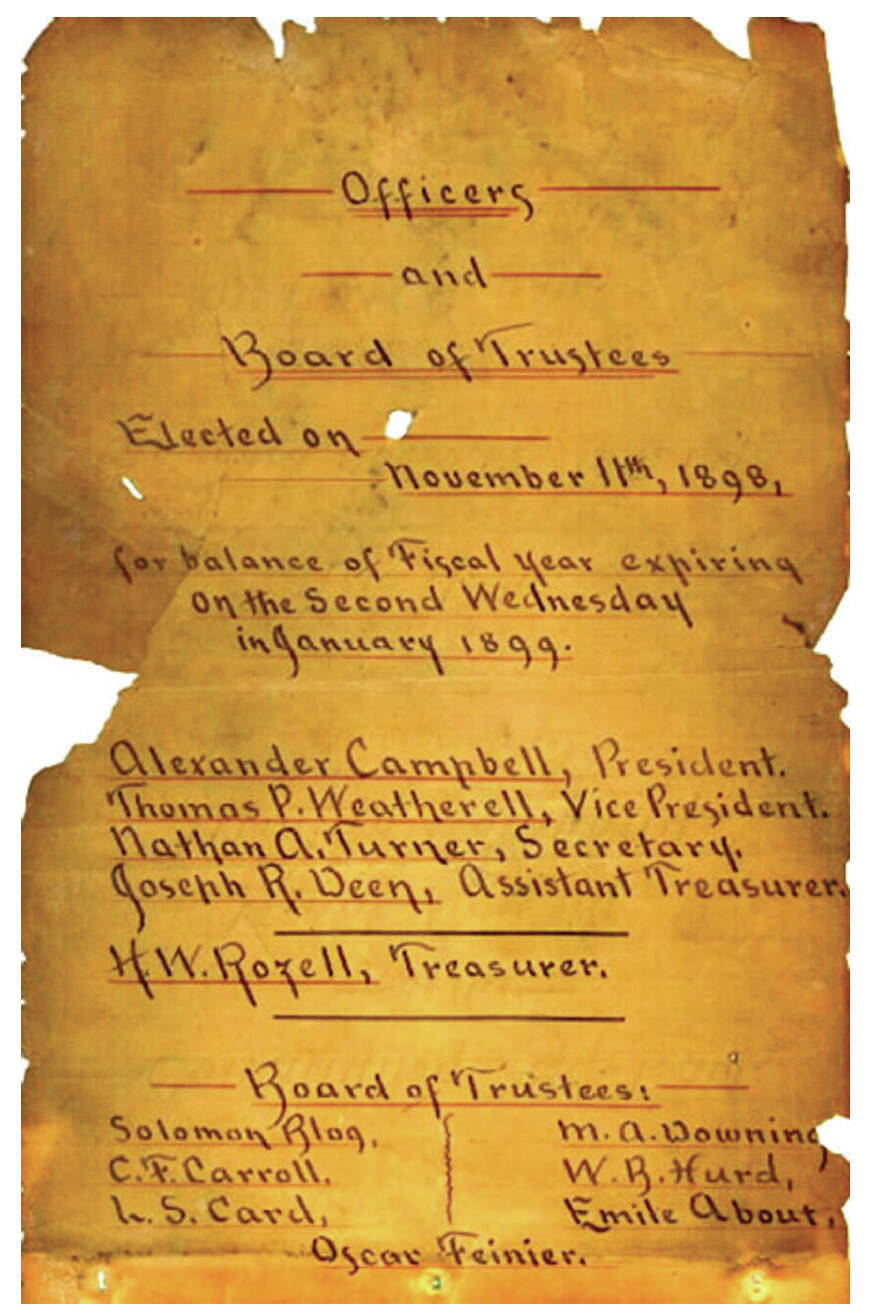 Officers
and
Board of Trustees
Elected on
November 11th, 1898,
for balance of Fiscal Year expiring
on the Second Wednesday
in January 1899.
Alexander Campbell, President.
Thomas P. Weatherell, Vice President.
Nathan A. Turner, Secretary.
Joseph R. Deen, Assistant Treasurer.
H. W. Rozell, Treasurer.
Board of Trustees:
Solomon Blog, M. A. Downing,
C. F. Carroll, W. B. Hurd,
L. S. Card, Emile About,
Oscar Feinier.